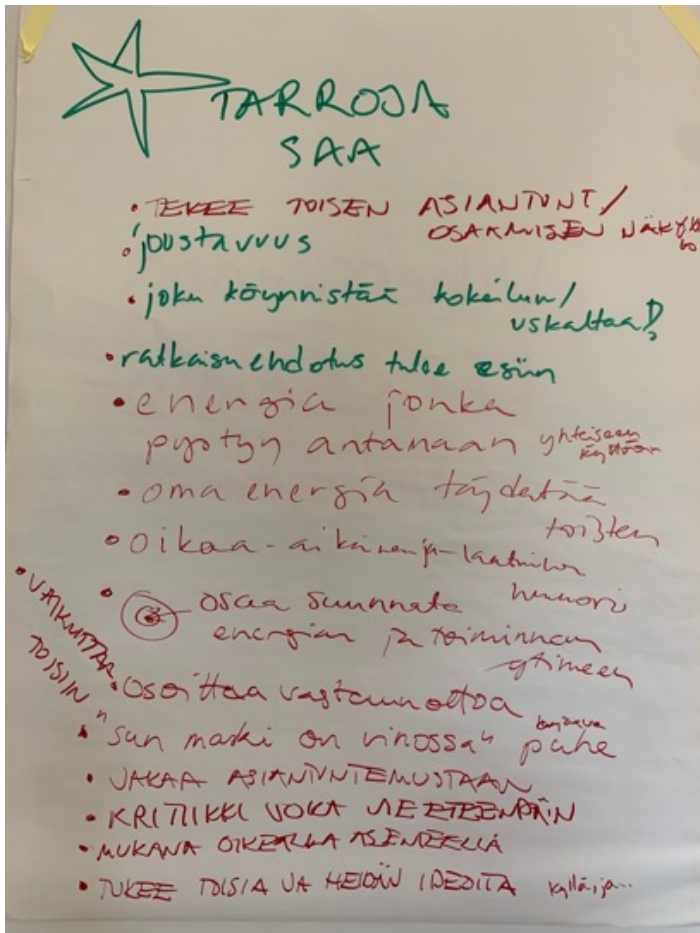 TARROJA
SAA
• TEKEE TOISEN ASIANTUNT/
OSAAMISEN
• joustavuus
• joku käynnistää kokeilun/
uskaltaa!
• ratkaisuehdotus tulee esiin
• energia jonka
pystyn antamaan yhteiseen
käyttöön
• oma energia täydentää
toisten
• oikea-aikainen ja -laatuinen
huumori
• osaa suunnata
energian ja toiminnan
ytimeen
• VAIKUTTAA
TOISIIN
• osoittaa vastaanottoa
• "sun maski on vinossa" puhe
• JAKAA ASIANTUNTEMUSTAAN
• KRITIIKKI JOKA VIE ETEENPÄIN
• MUKANA OIKEALLA ASENTEELLA
• TUKEE TOISIA JA HEIDÄN IDEOITA kyllä, ja...